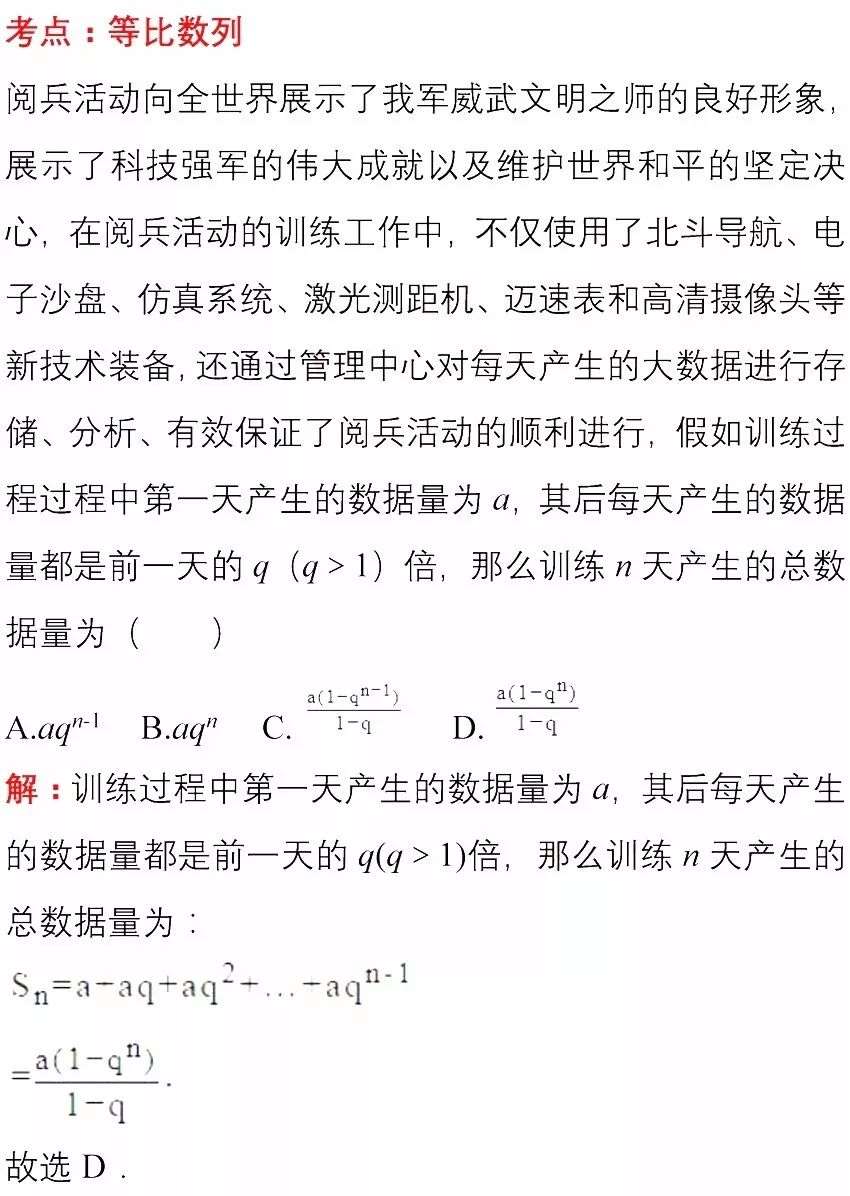 考点：等比数列
阅兵活动向全世界展示了我军威武文明之师的良好形象，
展示了科技强军的伟大成就以及维护世界和平的坚定决
心，在阅兵活动的训练工作中，不仅使用了北斗导航、电
子沙盘、仿真系统、激光测距机、迈速表和高清摄像头等
新技术装备，还通过管理中心对每天产生的大数据进行存
储、分析、有效保证了阅兵活动的顺利进行，假如训练过
程过程中第一天产生的数据量为 a，其后每天产生的数据
量都是前一天的 q（q > 1）倍，那么训练 n 天产生的总数
据量为（　　）
A.aq^{n-1} B.aq^n C. \frac{a(1-q^{n-1})}{1-q} D. \frac{a(1-q^n)}{1-q}
解：训练过程中第一天产生的数据量为 a，其后每天产生
的数据量都是前一天的 q(q > 1)倍，那么训练 n 天产生的
总数据量为：
S_n=a-aq+aq^2+...-aq^{n-1}
=\frac{a(1-q^n)}{1-q}.
故选 D．